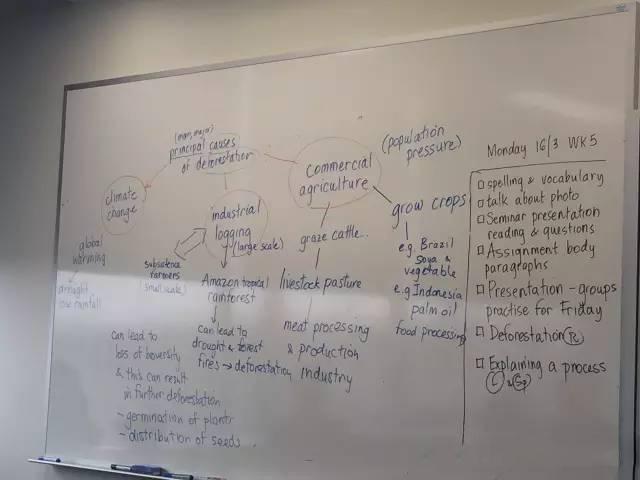 (main, major)
principal causes
of deforestation
climate
change
global
warming
drought
low rainfall
industrial
logging
(large scale)
subsistence
farmers
(small scale)
Amazon tropical
rainforest
can lead to
drought & forest
fires → deforestation
can lead to
loss of bioversity
& this can result
in further deforestation
- germination of plants
- distribution of seeds
commercial
agriculture
(population
pressure)
graze cattle..
livestock pasture
meat processing
& production
industry
grow crops
e.g. Brazil
Soya &
vegetable
e.g Indonesia
palm oil
food processing
Monday 16/3 WK5
spelling & vocabulary
talk about photo
Seminar presentation
reading & questions
Assignment body
paragraphs
Presentation - groups
practise for Friday
Deforestation (R)
Explaining a process
(L) & (Sp)